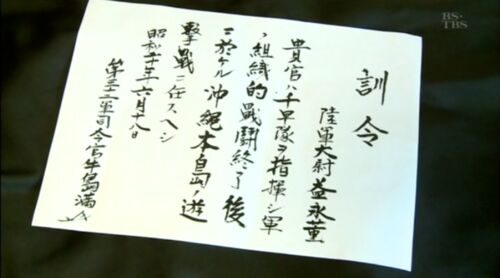 BS-TBS
訓令
陸軍大尉益永董
貴官ハ千早隊ヲ指揮シ軍
ノ組織的戰闘終了後
ニ於ケル沖縄本島ノ遊
撃戰ニ任スヘシ
昭和二十年六月十八日
第三二軍司令官牛島満